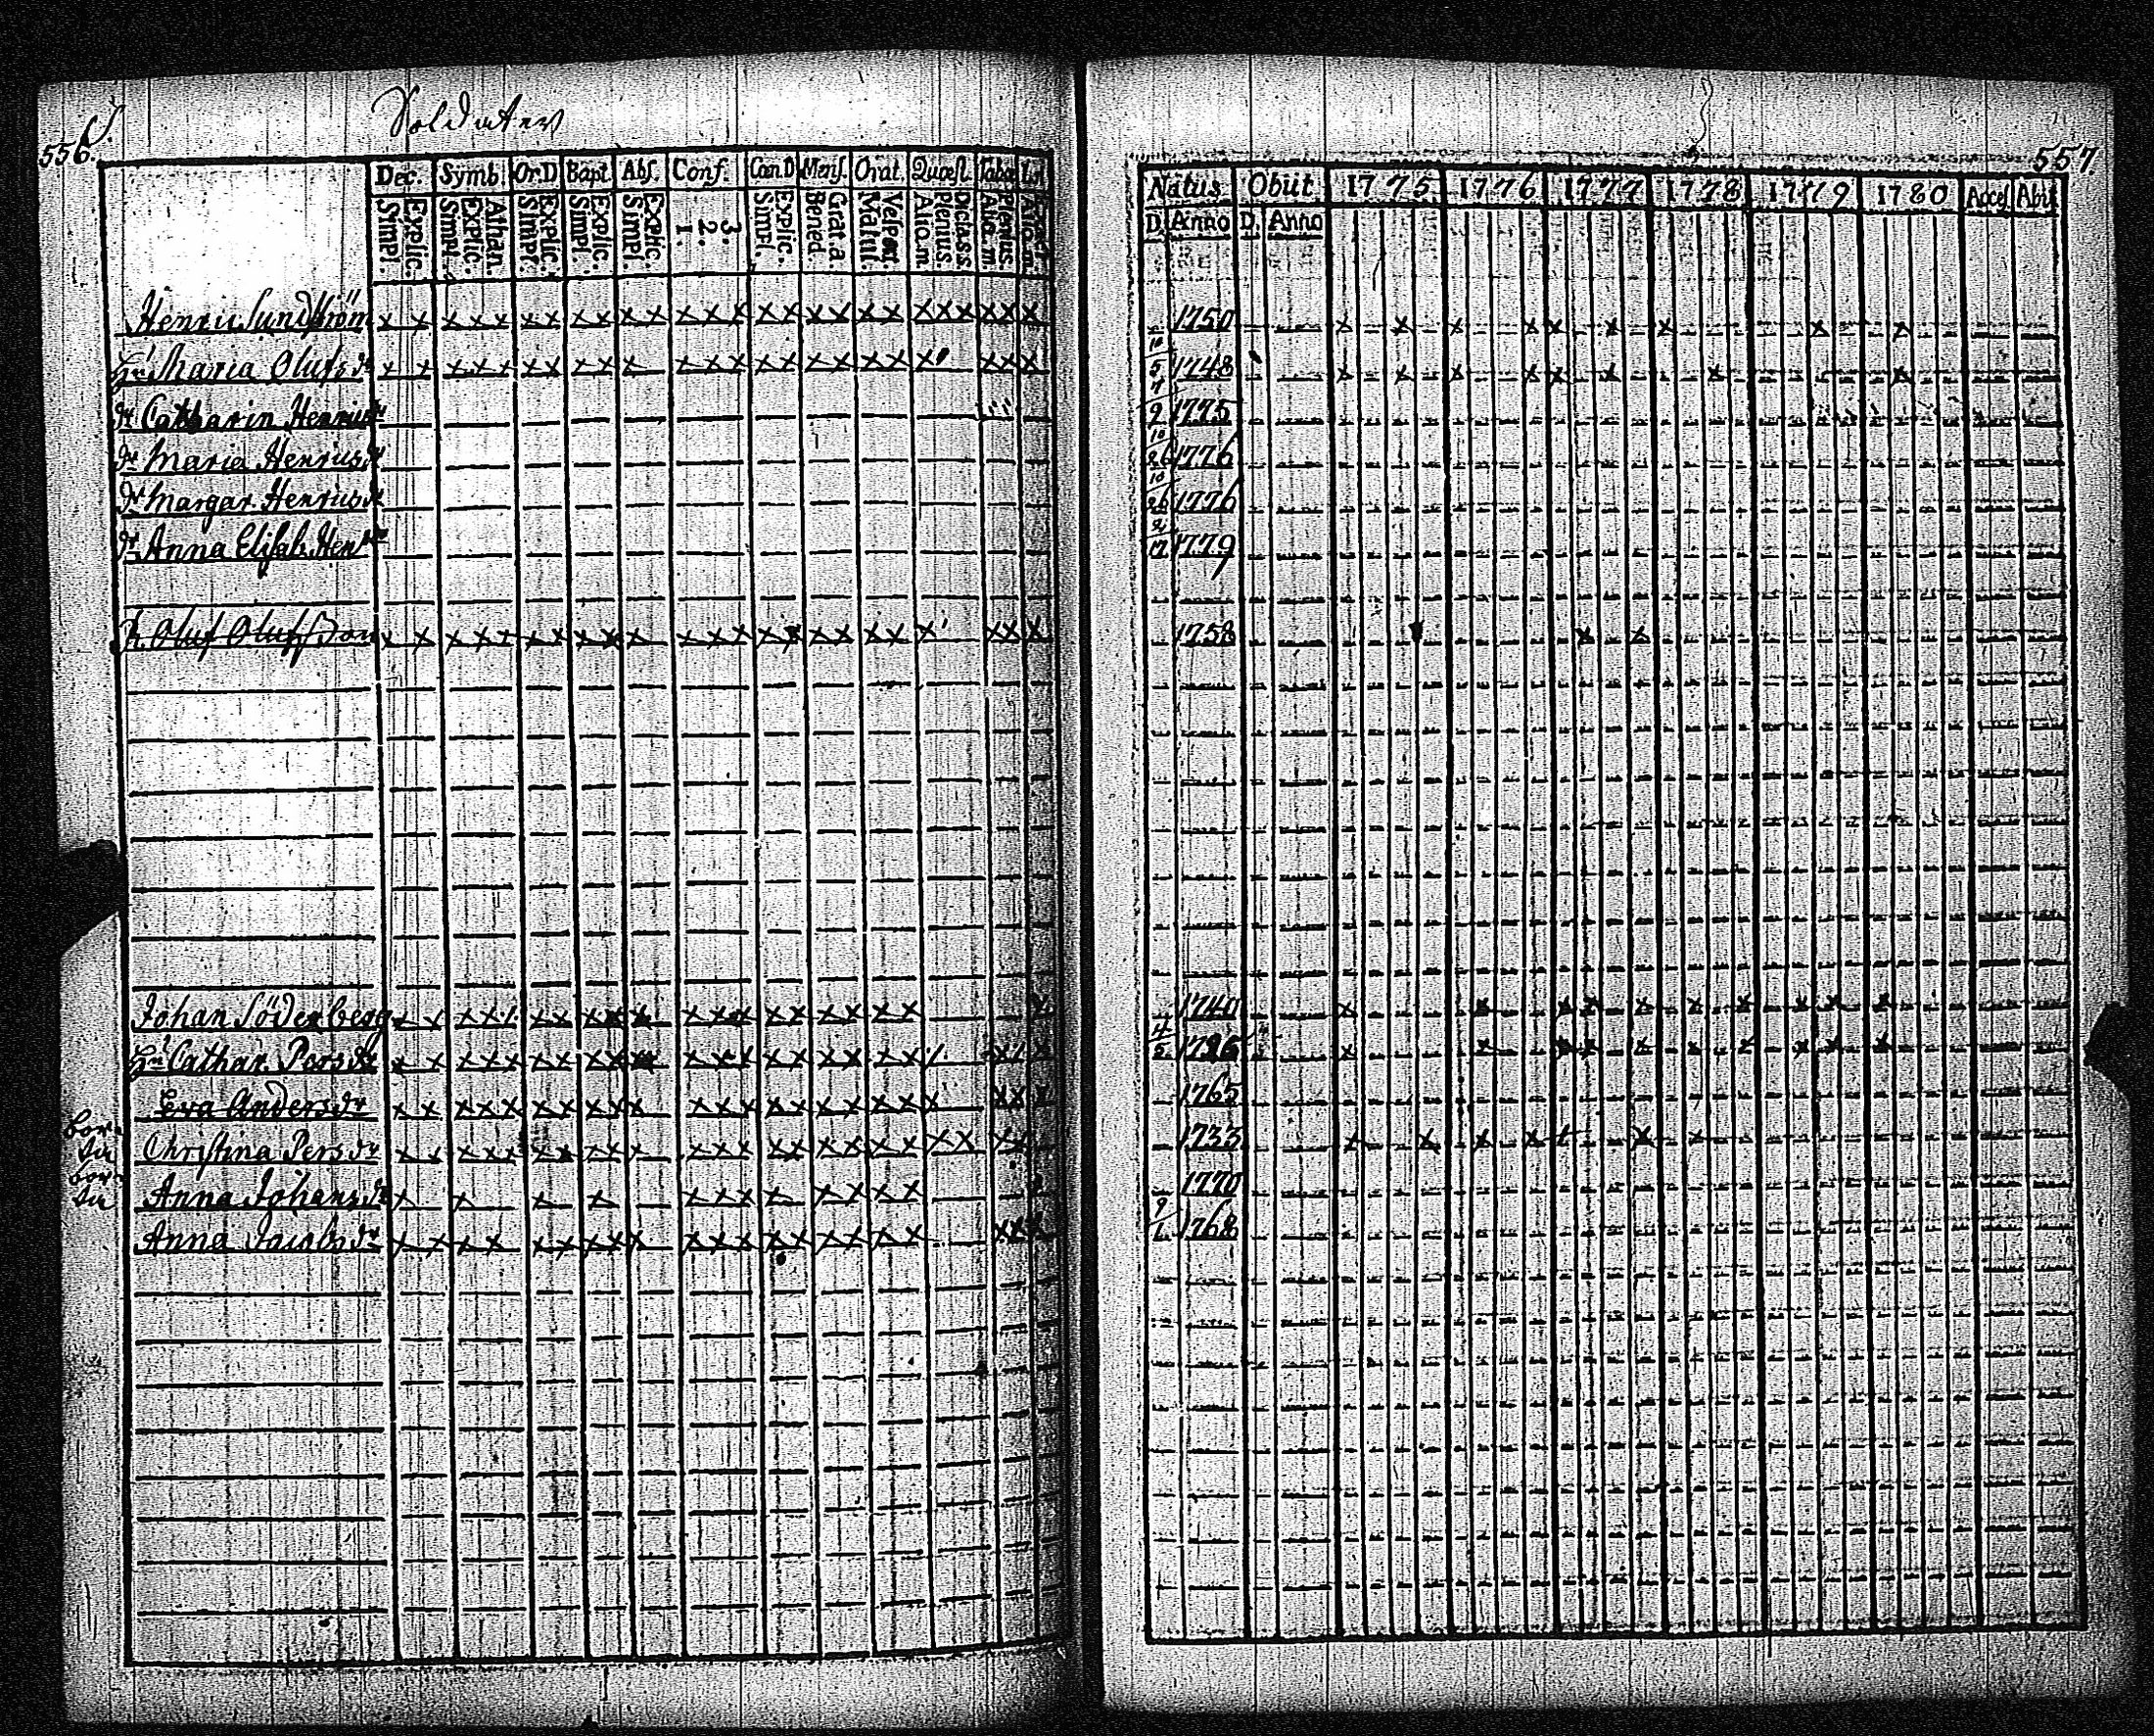 556.
Soldater
Dec. Symb. Or.D Bapt. Abs. Conf. Cœn.D Mens. Orat. Quæst.
Simpl. Explic. Simpl. Explic. Athan. Simpl. Explic. Simpl. Explic. Simpl. Explic. 1. 2. 3. Simpl. Explic. Bened. Grat. a. Matut. Vespert. Aliq. m. Plenius. Dicta s.s. Aliq. m. Plenius.
Henric Sundström x x x x x x x x x x x x x x x x x x x x x x x x x x
Hu Maria Olufs dr x x x x x x x x x x x x x x x x x x x x x x x
dr Catharin Henrics dr
dr Maria Henrics dr
dr Margar. Henrics dr
dr Anna Elisab. Hen dr
Oluf Olufsson x x x x x x x x x x x x x x x x x x x x x x
Johan Söderberg x x x x x x x x x x x x x x x x x x x x
Hu Cathar. Pers dr x x x x x x x x x x x x x x x x x x x x
Eva Anders dr x x x x x x x x x x x x x x x x x x x x x x x
Christina Pers dr x x x x x x x x x x x x x x x x x x x x x x
Anna Johans dr x x x x x x x x x x x x
Anna Jacobs dr x x x x x x x x x x x x x x x x x x x x x
557.
Natus Obiit 1775 1776 1777 1778 1779 1780 Acces. Abit.
D. Anno D. Anno
1750 x x x x x x x x x
1748 x x x x x x x x
1775
1776
1776
1779
1758 x x
1740 x x x x x x x x x x
x x x x x x x x x x
1765
1733 x x x x x x x
1770
1768